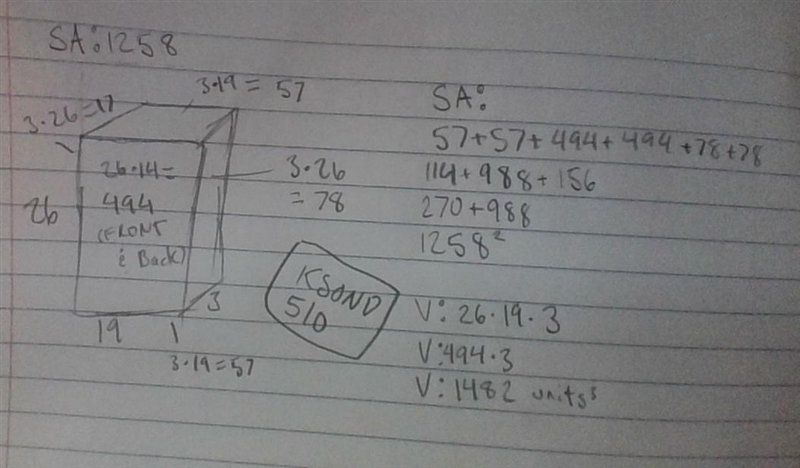 SA:1258
3·19=57
3·26=17
26·14=
494
(FRONT
& Back)
26
3·26
=78
3
19
3·19=57
KSOND
510
SA:
57+57+494+494+78+78
114+988+156
270+988
1258²
V: 26·19·3
V:494·3
V:1482 units³